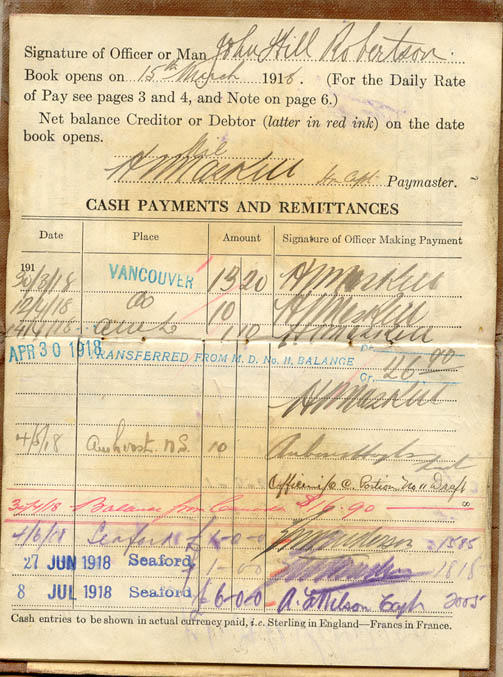 Signature of Officer or Man John Hill Robertson.
Book opens on 15th March 1918. (For the Daily Rate
of Pay see pages 3 and 4, and Note on page 6.)
Net balance Creditor or Debtor (latter in red ink) on the date
book opens.
Nil
Paymaster.
CASH PAYMENTS AND REMITTANCES
Date Place Amount Signature of Officer Making Payment
191
30/3/18 VANCOUVER 15 20
12/4/18 do 10
APR 30 1918 TRANSFERRED FROM M. D. No. 11. BALANCE Dr.
Cr. 26.90
4/5/18 Amherst N.S. 10
Officer i/c C. Portion "No 11 Draft
30/4/18 Balance from Canada $16.90
4/6/18 Seaford £ 1-0-0 1585
27 JUN 1918 Seaford £ 1-0-0 1818
8 JUL 1918 Seaford £ 6-0-0 A. L. Wilson Capt 2005
Cash entries to be shown in actual currency paid, i.e. Sterling in England—Francs in France.